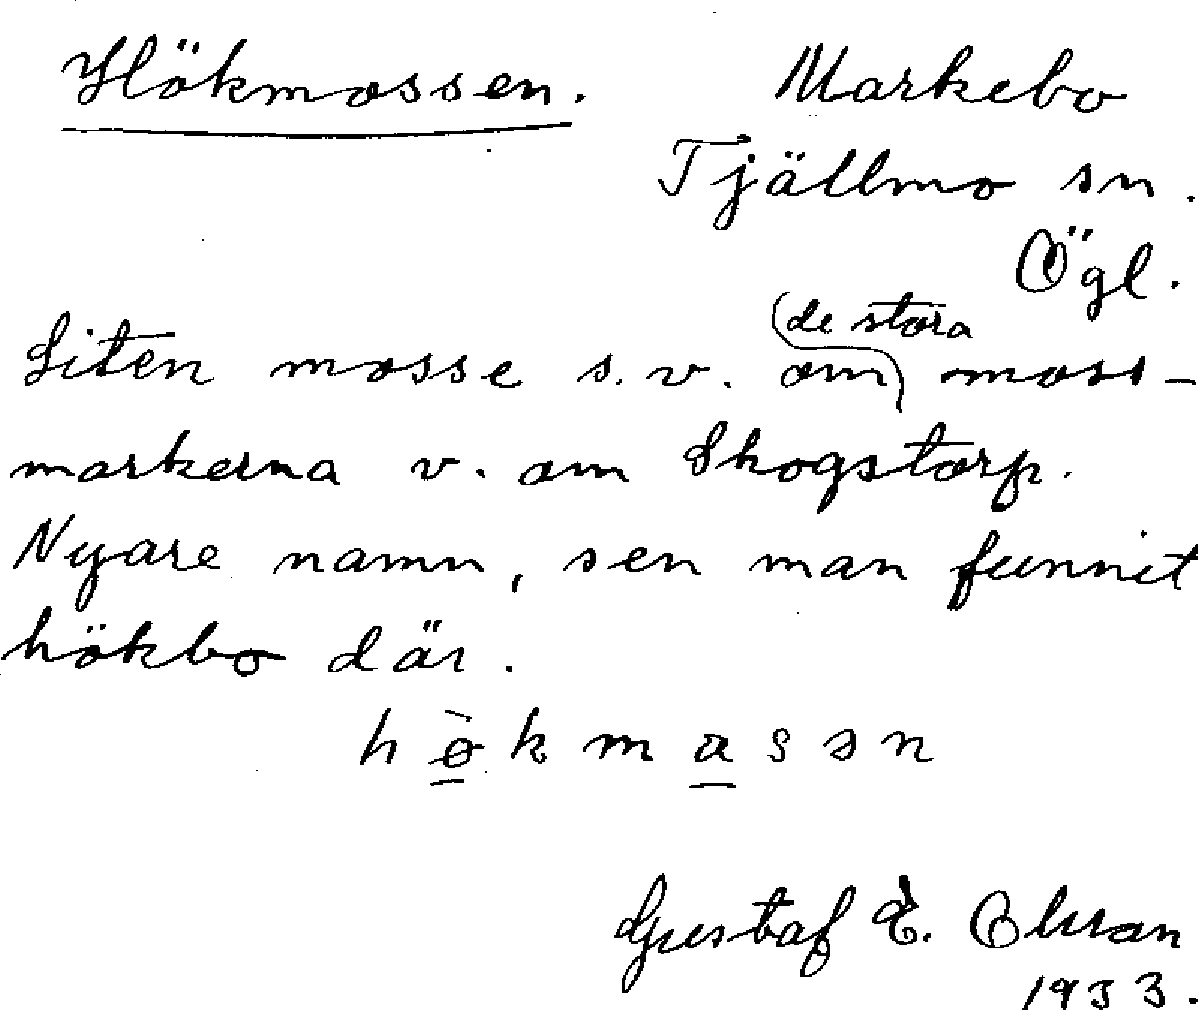 Hökmossen. Markebo
Tjällmo sn.
Ögl.
Liten mosse s.v. om de stora moss-
markerna v. om Skogstorp.
Nyare namn, sen man funnit
hökbo där.
hø̀kmassn
Gustaf E. Olsson
1933.